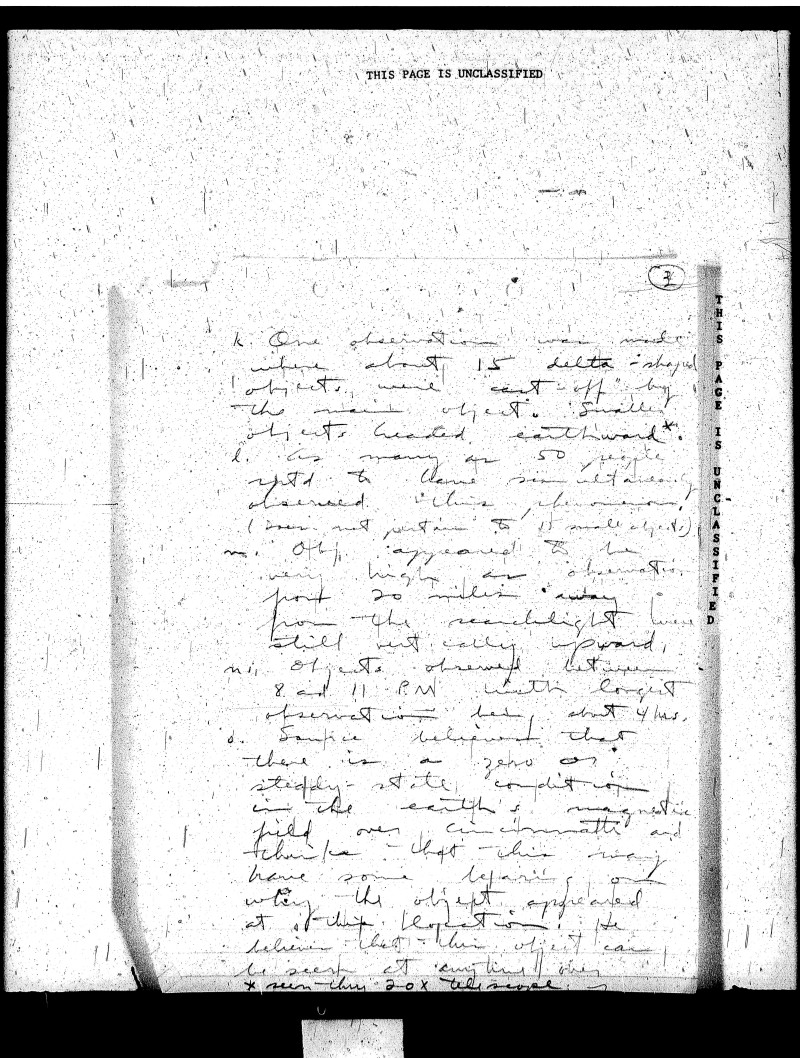 THIS PAGE IS UNCLASSIFIED
k One observation was made
where about 15 delta-shaped
objects were cast off by
the main object. Smaller
objects headed earthward*.
l. As many as 50 people
to have simultaneously
observed this phenomenon,
(Does not pertain to 15 small objects)
m. Obj. appeared to be
very high as observation
from 20 miles away
from the searchlight were
still vertically upward,
n. Objects observed between
8 ad 11 PM with longest
observation being about 4 hrs.
o. Source believes that
there is a zero or
steady-state condition
in the earth's magnetic
field over Cincinnatti and
thinks that this may
have some bearing on
why the object appeared
at this location. He
believes that this object can
be seen at anytime over
* seen thru 20X telescope
THIS PAGE IS UNCLASSIFIED